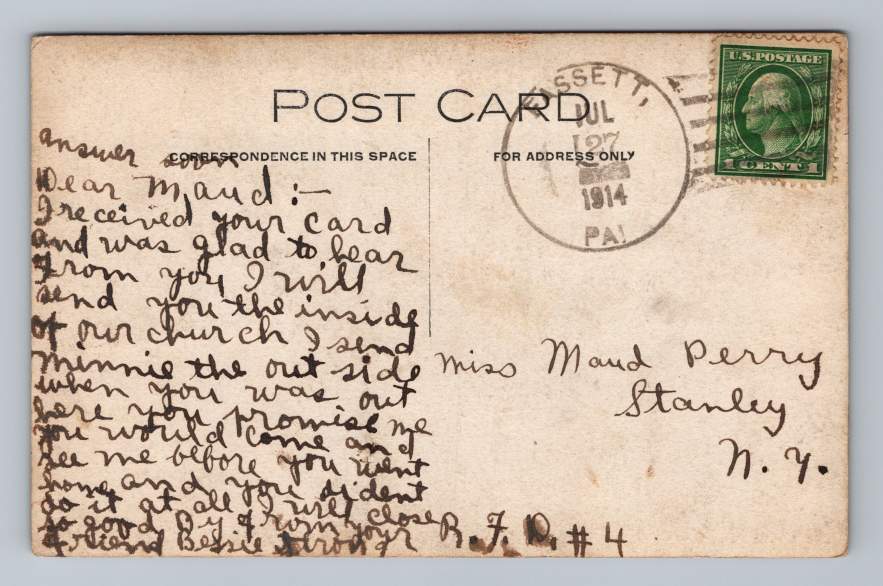 POST CARD
CORRESPONDENCE IN THIS SPACE
FOR ADDRESS ONLY
FASSETT,
JUL
27
1914
PA.
U.S.POSTAGE
1 CENT 1
answer soon
Dear Maud:—
I received your card
and was glad to hear
from you, I will
send you the inside
of our church I send
Minnie the out side
when you was out
here you promise me
you would come and
see me before you went
home and you dident
do it at all I will close
so good by from your
friend Bessie Strong
Miss Maud Perry
Stanley
N. Y.
R. F. D. #4